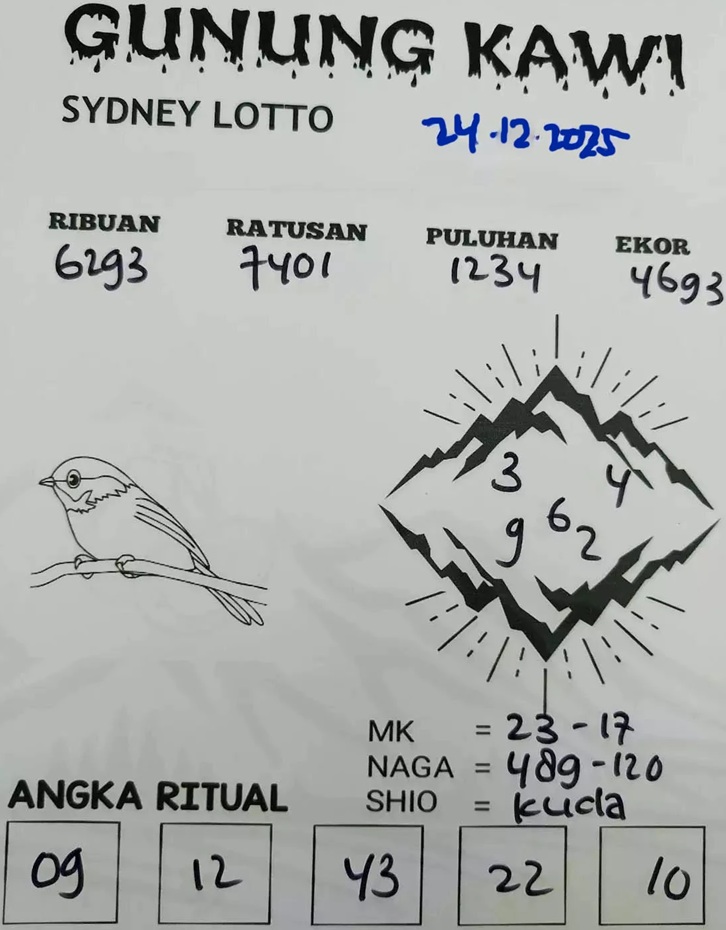 GUNUNG KAWI
SYDNEY LOTTO 24.12.2025
RIBUAN RATUSAN PULUHAN EKOR
6293 7401 1234 4693
3 4
9 6 2
MK = 23-17
NAGA = 489-120
SHIO = kuda
ANGKA RITUAL
09 12 43 22 10